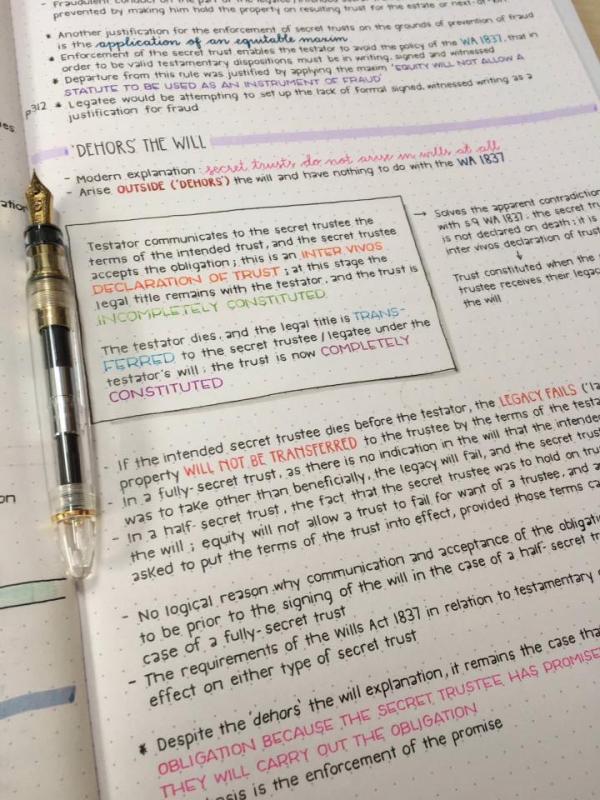 - Fraudulent conduct on the part of the legatee/
prevented by making him hold the property on resulting trust for the estate or next-of-kin
* Another justification for the enforcement of secret trusts on the grounds of prevention of fraud
is the application of an equitable maxim
* Enforcement of the secret trust enables the testator to avoid the policy of the WA 1837, that in
order to be valid testamentary dispositions must be in writing, signed and witnessed
* Departure from this rule was justified by applying the maxim 'EQUITY WILL NOT ALLOW A
STATUTE TO BE USED AS AN INSTRUMENT OF FRAUD'
p312 * Legatee would be attempting to set up the lack of formal signed, witnessed writing as a
justification for fraud
'DEHORS' THE WILL
- Modern explanation: secret trusts do not arise in wills at all
- Arise OUTSIDE ('DEHORS') the will and have nothing to do with the WA 1837
Testator communicates to the secret trustee the
terms of the intended trust, and the secret trustee
accepts the obligation; this is an INTER VIVOS
DECLARATION OF TRUST; at this stage the
legal title remains with the testator, and the trust is
INCOMPLETELY CONSTITUTED
The testator dies, and the legal title is TRANS-
FERRED to the secret trustee/legatee under the
testator's will; the trust is now COMPLETELY
CONSTITUTED
→ Solves the apparent contradiction
with s9 WA 1837: the secret
is not declared on death; it is
inter vivos declaration of trust
↓
Trust constituted when the
trustee receives their
the will
- If the intended secret trustee dies before the testator, the LEGACY FAILS
property WILL NOT BE TRANSFERRED to the trustee by the terms of the
- In a fully-secret trust, as there is no indication in the will that the intended
was to take other than beneficially, the legacy will fail, and the secret
- In a half-secret trust, the fact that the secret trustee was to hold on
the will; equity will not allow a trust to fail for want of a trustee, and
asked to put the terms of the trust into effect, provided those terms
- No logical reason why communication and acceptance of the
to be prior to the signing of the will in the case of a half-secret
case of a fully-secret trust
- The requirements of the Wills Act 1837 in relation to testamentary
effect on either type of secret trust
* Despite the 'dehors' the will explanation, it remains the case
OBLIGATION BECAUSE THE SECRET TRUSTEE HAS
THEY WILL CARRY OUT THE OBLIGATION
is the enforcement of the promise